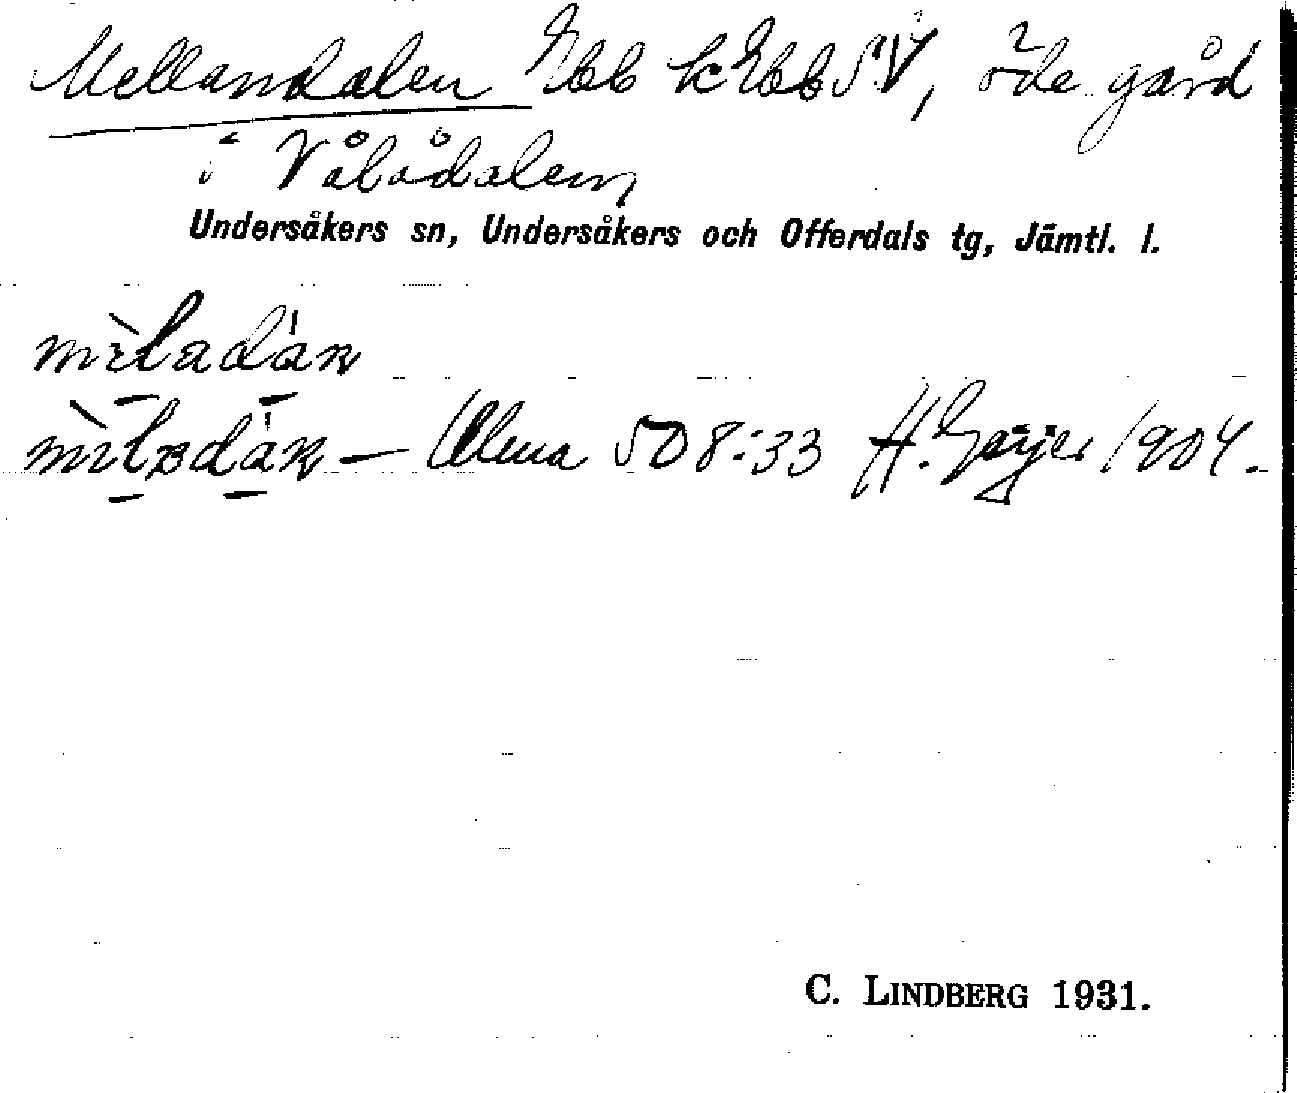 Mellandalen Ebb k Ebb SV, öde gård
i Vålådalen
Undersåkers sn, Undersåkers och Offerdals tg, Jämtl. l.
mìladán
508:33 H. Geijer 1904.
C. LINDBERG 1931.